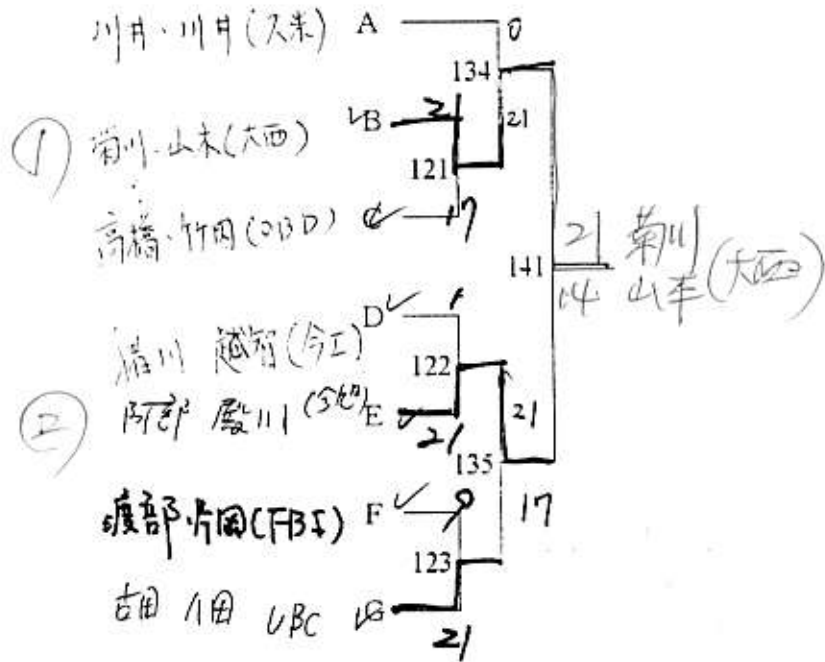 川井・川井(久米) A 0
134
① 菊川・山本(大西) B 2 21
121
高橋・竹田(OBD) C 17
141 21 菊川
14 山本(大西)
D 1
越智(今工)
122
② 阿部 殿川 E 21
21
135
渡部・片岡(FBI) F 0 17
123
吉田 八田 UBC G 21